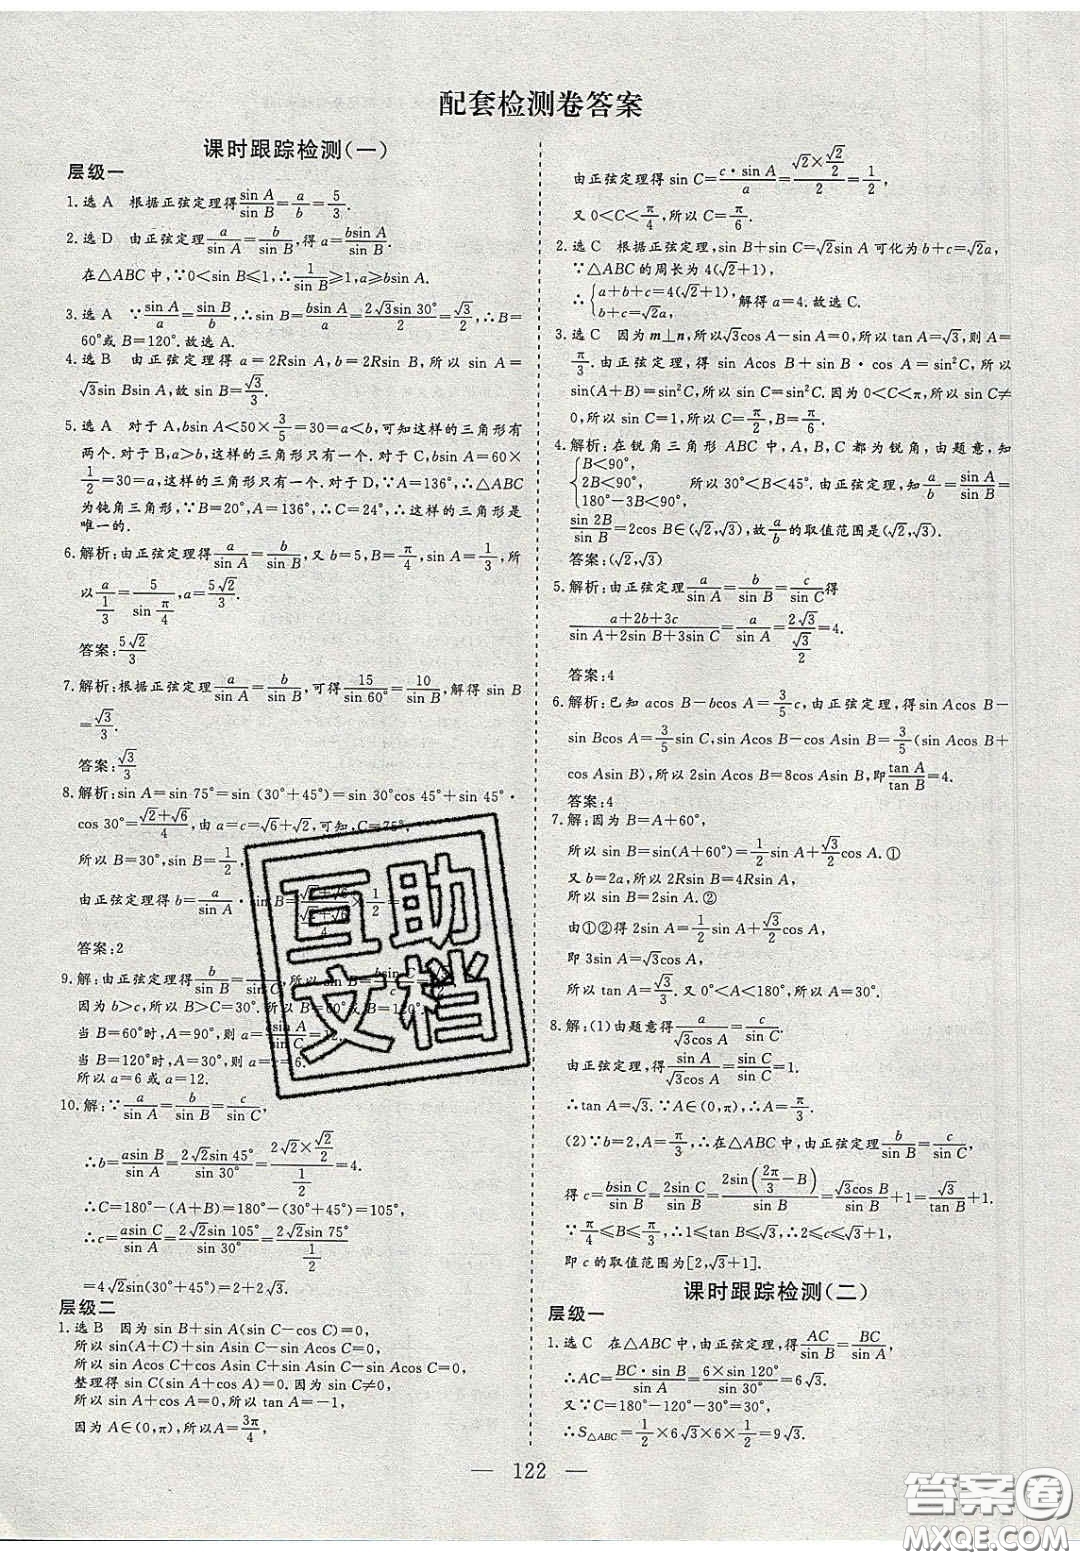 配套检测卷答案
课时跟踪检测(一)
层级一
1.选A 根据正弦定理得sin A/sin B=a/b=5/3.
2.选D 由正弦定理a/sin A=b/sin B,得a=bsin A/sin B.
在△ABC中,∵0<sin B≤1,∴1/sin B≥1,a≥bsin A.
3.选A ∵sin A/a=sin B/b,∴sin B=bsin A/a=2√3sin 30°/2=√3/2,∴B=
60°或B=120°.故选A.
4.选B 由正弦定理得a=2Rsin A,b=2Rsin B,所以sin A=
√3sin Bsin A,故sin B=√3/3.
5.选A 对于A,bsin A<50×3/5=30=a<b,可知这样的三角形有
两个.对于B,a>b,这样的三角形只有一个.对于C,bsin A=60×
1/2=30=a,这样的三角形只有一个.对于D,∵A=136°,∴△ABC
为钝角三角形,∵B=20°,A=136°,∴C=24°,∴这样的三角形是
唯一的.
6.解析:由正弦定理得a/sin A=b/sin B,又b=5,B=π/4,sin A=1/3,所
以a/(1/3)=5/sin(π/4),a=5√2/3.
答案:5√2/3
7.解析:根据正弦定理a/sin A=b/sin B,可得15/sin 60°=10/sin B,解得sin B
=√3/3.
答案:√3/3
8.解析:sin A=sin 75°=sin (30°+45°)=sin 30°cos 45°+sin 45°·
cos 30°=(√2+√6)/4,由a=c=√6+√2,可知,C=75°,
所以B=30°,sin B=1/2,
由正弦定理得b=a/sin A·sin B=
答案:2
9.解:由正弦定理得b/sin B=c/sin C,所以sin B=bsin C/c
因为b>c,所以B>C=30°.所以B=60°或B=120°.
当B=60°时,A=90°,则a=csin A/sin C=12.
当B=120°时,A=30°,则a=
所以a=6或a=12.
10.解:∵a/sin A=b/sin B=c/sin C,
∴b=asin B/sin A=2√2sin 45°/sin 30°=(2√2×√2/2)/(1/2)=4.
∴C=180°-(A+B)=180°-(30°+45°)=105°,
∴c=asin C/sin A=2√2sin 105°/sin 30°=2√2sin 75°/(1/2)
=4√2sin(30°+45°)=2+2√3.
层级二
1.选B 因为sin B+sin A(sin C-cos C)=0,
所以sin(A+C)+sin Asin C-sin Acos C=0,
所以sin Acos C+cos Asin C+sin Asin C-sin Acos C=0,
整理得sin C(sin A+cos A)=0.因为sin C≠0,
所以sin A+cos A=0,所以tan A=-1,
因为A∈(0,π),所以A=3π/4,
由正弦定理得sin C=c·sin A/a=(√2×√2/2)/2=1/2,
又0<C<π/4,所以C=π/6.
2.选C 根据正弦定理,sin B+sin C=√2sin A可化为b+c=√2a,
∵△ABC的周长为4(√2+1),
∴{a+b+c=4(√2+1), b+c=√2a, 解得a=4.故选C.
3.选C 因为m⊥n,所以√3cos A-sin A=0,所以tan A=√3,则A=
π/3.由正弦定理,得sin Acos B+sin B·cos A=sin²C,所以
sin(A+B)=sin²C,所以sin C=sin²C.因为0<C<π,所以sin C≠
0,所以sin C=1,所以C=π/2,B=π/6.
4.解析:在锐角三角形ABC中,A,B,C都为锐角,由题意,知
{B<90°, 2B<90°, 180°-3B<90°, 所以30°<B<45°.由正弦定理,知a/b=sin A/sin B=
sin 2B/sin B=2cos B∈(√2,√3),故a/b的取值范围是(√2,√3).
答案:(√2,√3)
5.解析:由正弦定理a/sin A=b/sin B=c/sin C得
(a+2b+3c)/(sin A+2sin B+3sin C)=a/sin A=2√3/(√3/2)=4.
答案:4
6.解析:已知acos B-bcos A=3/5c,由正弦定理,得sin Acos B-
sin Bcos A=3/5sin C,sin Acos B-cos Asin B=3/5(sin Acos B+
cos Asin B),所以2sin Acos B=8cos Asin B,即tan A/tan B=4.
答案:4
7.解:因为B=A+60°,
所以sin B=sin(A+60°)=1/2sin A+√3/2cos A.①
又b=2a,所以2Rsin B=4Rsin A,
所以sin B=2sin A.②
由①②得2sin A=1/2sin A+√3/2cos A,
即3sin A=√3cos A,
所以tan A=√3/3.又0°<A<180°,所以A=30°.
8.解:(1)由题意得a/√3cos A=c/sin C,
由正弦定理得sin A/√3cos A=sin C/sin C=1,
∴tan A=√3.∵A∈(0,π),∴A=π/3.
(2)∵b=2,A=π/3,∴在△ABC中,由正弦定理b/sin B=c/sin C,
得c=bsin C/sin B=2sin C/sin B=2sin(2π/3-B)/sin B=√3cos B/sin B+1=√3/tan B+1.
∵π/4≤B≤π/3,∴1≤tan B≤√3,∴2≤c≤√3+1,
即c的取值范围为[2,√3+1].
课时跟踪检测(二)
层级一
1.选C 在△ABC中,由正弦定理,得AC/sin B=BC/sin A,
∴AC=BC·sin B/sin A=6×sin 120°/sin 30°=6√3.
又∵C=180°-120°-30°=30°,
∴S△ABC=1/2×6√3×6×1/2=9√3.
— 122 —
互助
文档
答案圈
MXQE.COM